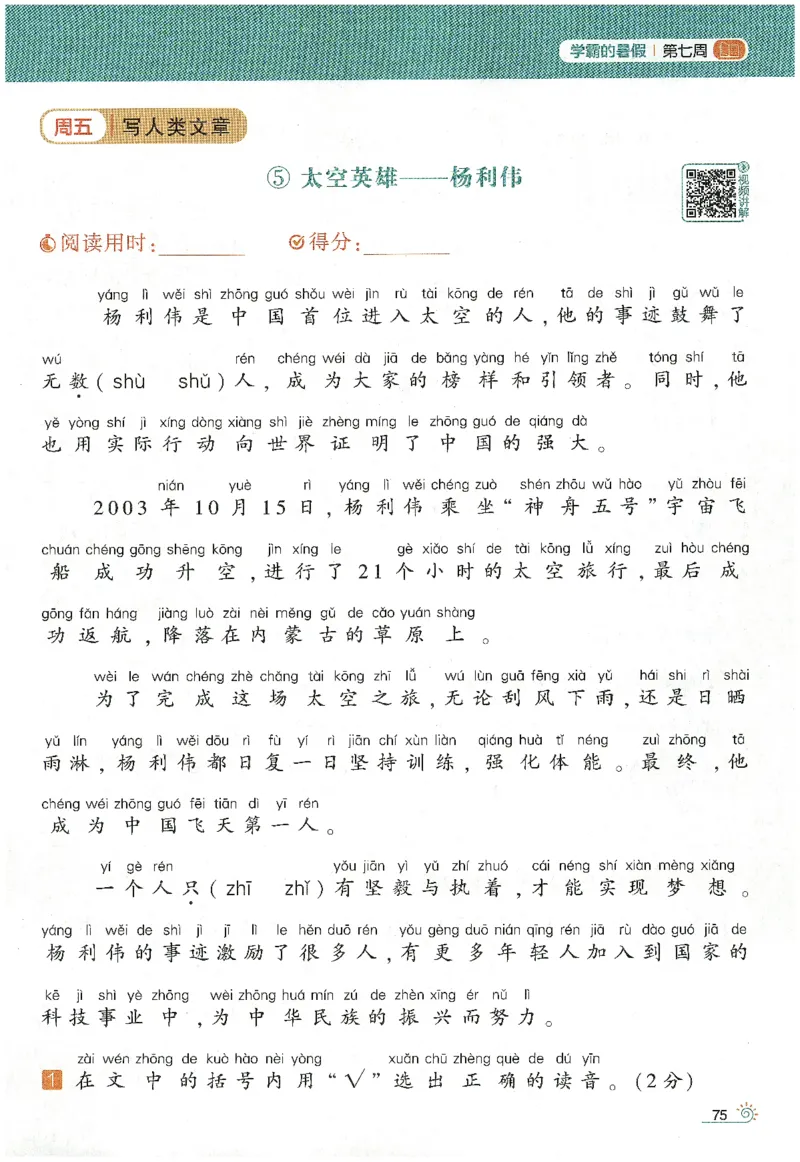 学霸的暑假 第七周
周五 写人类文章
⑤ 太空英雄——杨利伟
视频讲解
阅读用时:________ 得分:________
yáng lì wěi shì zhōng guó shǒu wèi jìn rù tài kōng de rén tā de shì jì gǔ wǔ le
杨利伟是中国首位进入太空的人,他的事迹鼓舞了
wú rén chéng wéi dà jiā de bǎng yàng hé yǐn lǐng zhě tóng shí tā
无数(shù shǔ)人,成为大家的榜样和引领者。同时,他
yě yòng shí jì xíng dòng xiàng shì jiè zhèng míng le zhōng guó de qiáng dà
也用实际行动向世界证明了中国的强大。
nián yuè rì yáng lì wěi chéng zuò shén zhōu wǔ hào yǔ zhòu fēi
2003年10月15日,杨利伟乘坐“神舟五号”宇宙飞
chuán chéng gōng shēng kōng jìn xíng le gè xiǎo shí de tài kōng lǚ xíng zuì hòu chéng
船成功升空,进行了21个小时的太空旅行,最后成
gōng fǎn háng jiàng luò zài nèi měng gǔ de cǎo yuán shàng
功返航,降落在内蒙古的草原上。
wèi le wán chéng zhè chǎng tài kōng zhī lǚ wú lùn guā fēng xià yǔ hái shi rì shài
为了完成这场太空之旅,无论刮风下雨,还是日晒
yǔ lín yáng lì wěi dōu rì fù yí rì jiān chí xùn liàn qiáng huà tǐ néng zuì zhōng tā
雨淋,杨利伟都日复一日坚持训练,强化体能。最终,他
chéng wéi zhōng guó fēi tiān dì yī rén
成为中国飞天第一人。
yí gè rén yǒu jiān yì yǔ zhí zhuó cái néng shí xiàn mèng xiǎng
一个人只(zhī zhǐ)有坚毅与执着,才能实现梦想。
yáng lì wěi de shì jì jī lì le hěn duō rén yǒu gèng duō nián qīng rén jiā rù dào guó jiā de
杨利伟的事迹激励了很多人,有更多年轻人加入到国家的
kē jì shì yè zhōng wèi zhōng huá mín zú de zhèn xīng ér nǔ lì
科技事业中,为中华民族的振兴而努力。
zài wén zhōng de kuò hào nèi yòng xuǎn chū zhèng què de dú yīn
1 在文中的括号内用“√”选出正确的读音。(2分)
75